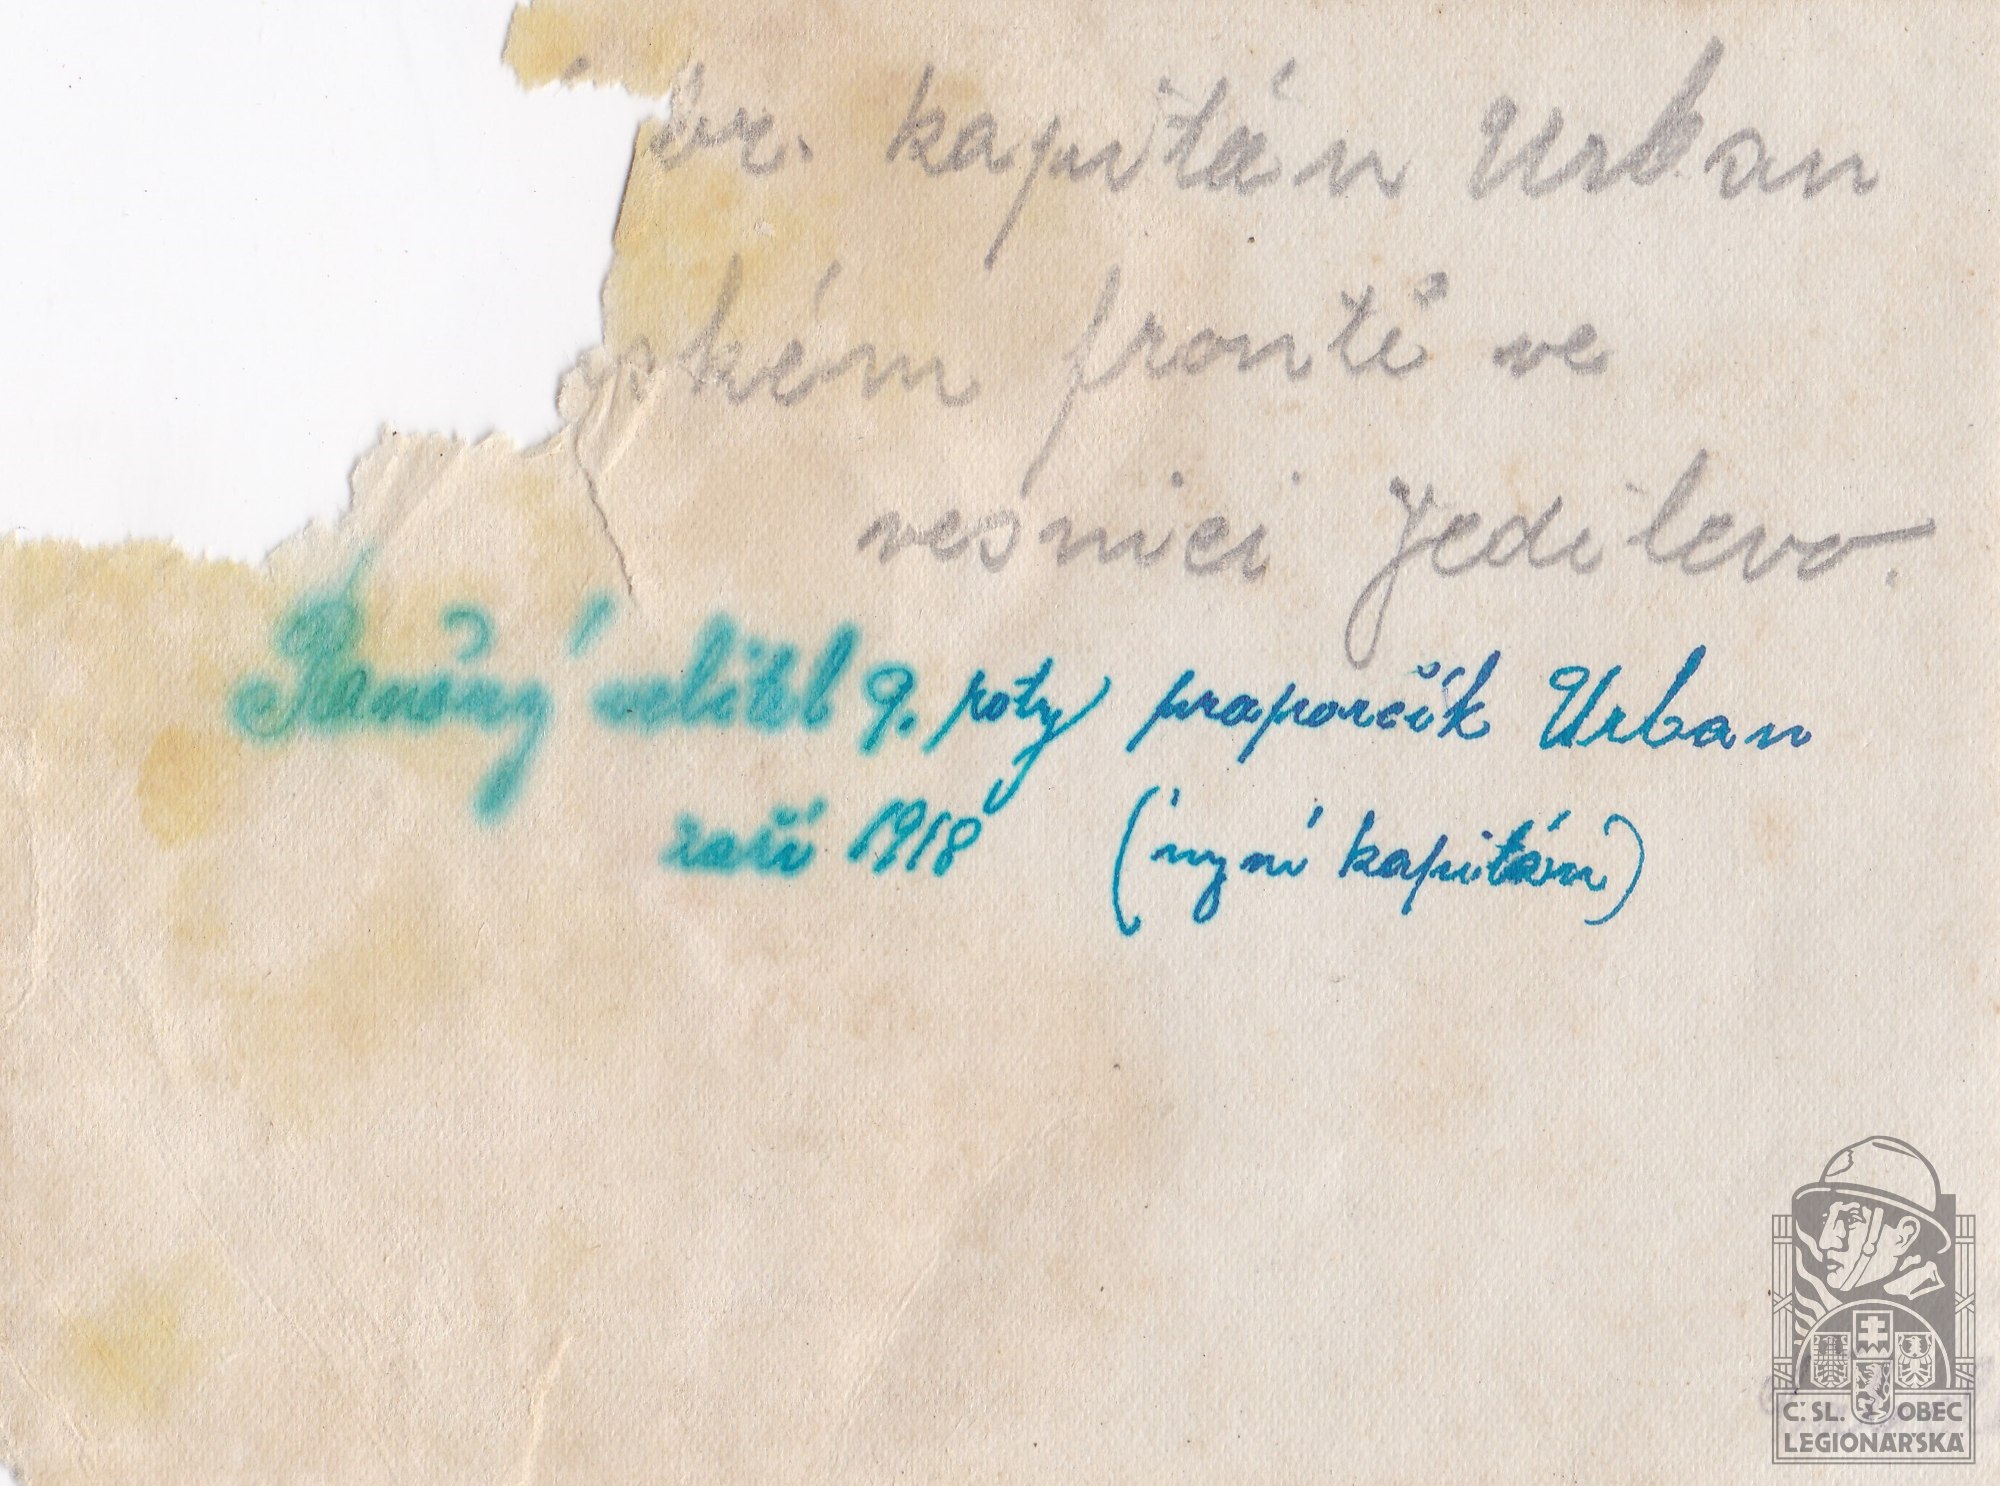 br. kapitán Urban
ském frontě ve
vesnici Jedilevo.
Raněný velitel 9. roty praporčík Urban
září 1918 (nyní kapitán)
Č. SL. OBEC
LEGIONÁŘSKÁ